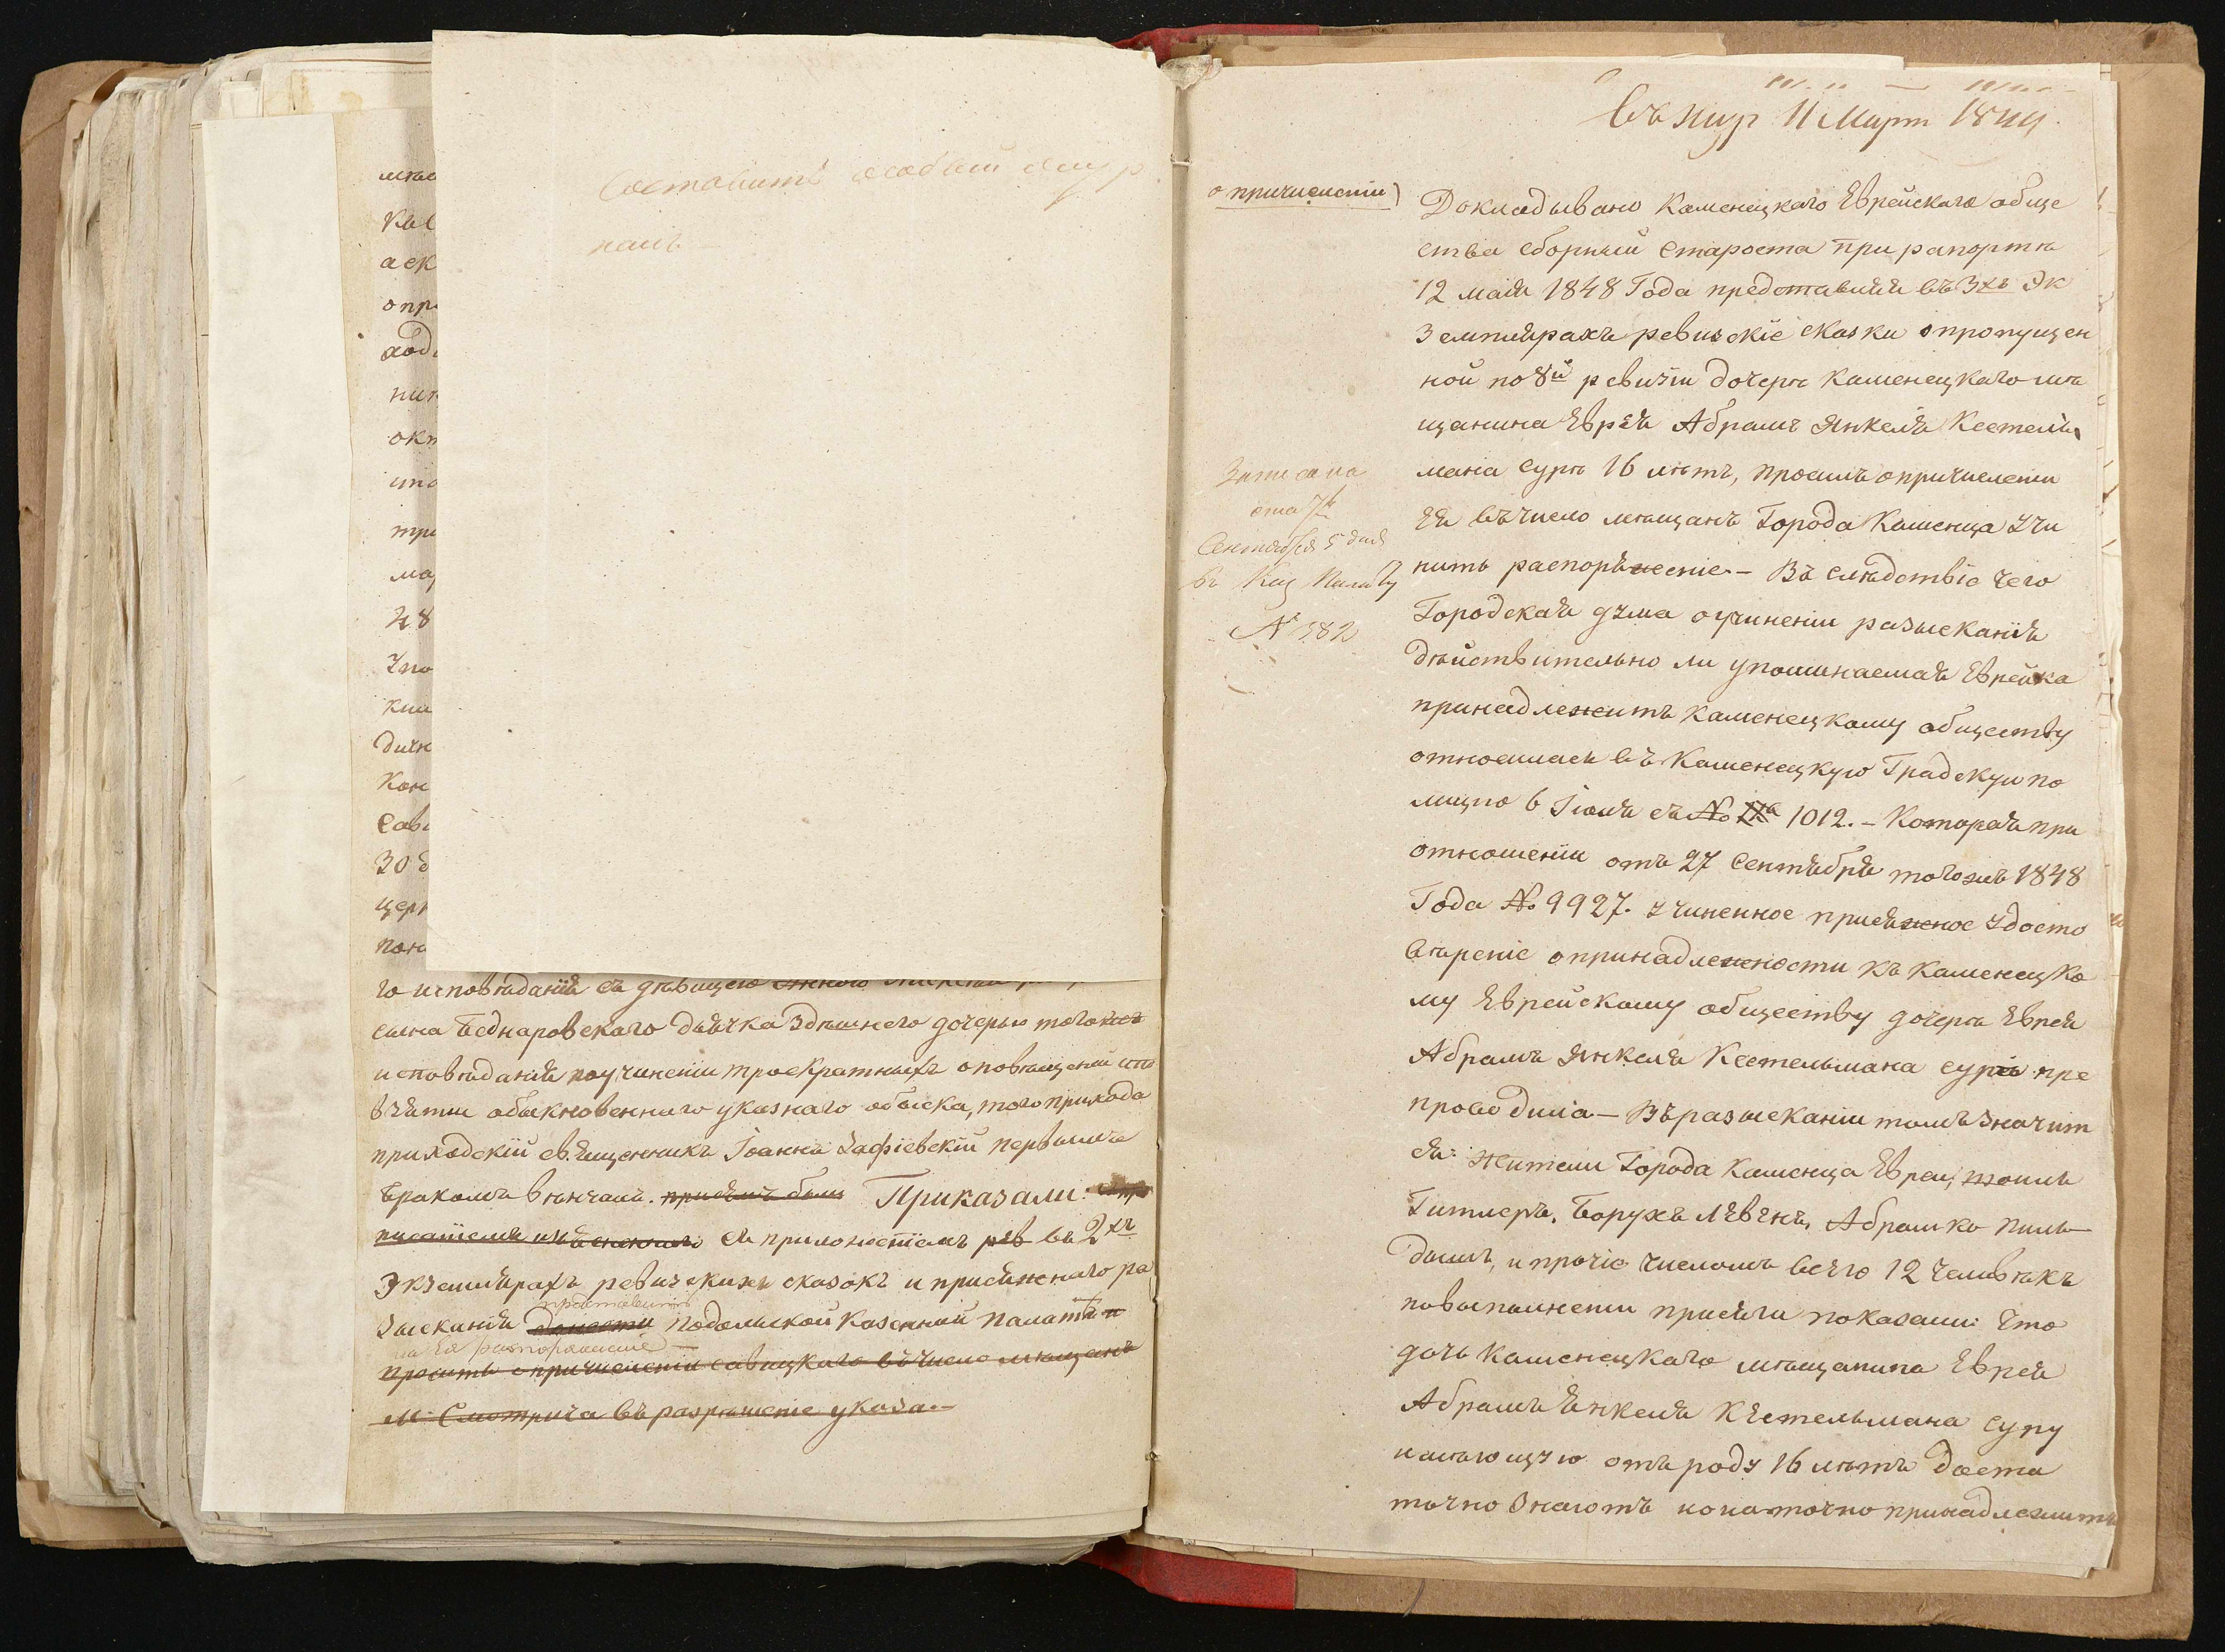 Составить особый жур
налъ
мѣс
кві
аск
опре
ход
ник
окт
что
при
мар
48
Что
кни
дичн
кон
Сав
30 д
церк
пон
го исповѣданія съ дѣвицею
сына Беднаровскаго дьячка Здѣшнего дочерью тогожъ
исповѣданія поучиненіи троекратныхъ оповѣщеній ипо
взятіи обыкновеннаго указнаго обыска, того прихода
приходскій священникъ Іоаннъ Зафіевскій первымъ
бракомъ вѣнчалъ. Приказали:
съ приложеніемъ рев въ 2хъ
Экземплярахъ ревизскихъ сказокъ и присяжнаго ра
представить
зысканія донести Подольской Казенной Палатѣ и
на Ея распоряженіе
просить опричисленіи савицкаго въ число мѣщанъ
М: Смотрича въ разрѣшеніе указа.
Въ жур 11 Март 1849.
о причисленіи)
Докладывано Каменецкаго Еврейскаго обще
ства сборный староста при рапортѣ
12 мая 1848 Года представляя въ 3хъ Эк
земплярахъ ревизскіе сказки опропущен
ной по 8й ревизіи дочерѣ каменецкаго мѣ
щанина Еврея Абрамъ Янкеля Кестель
мана Сурѣ 16 лѣтъ, просилъ опричисленіи
Ея въ число мѣщанъ Города Каменца Учи
нить распоряженіе. – Въ слѣдствіе чего
Городская дума оучиненіи разысканія
дѣйствительно ли упоминаемая Еврейка
принадлежитъ каменецкому обществу
относилась въ Каменецкую Градскую по
лицію 6 Іюля съ № 1012. – Которая при
отношеніи отъ 27 Сентября тогожъ 1848
Года № 9927. Учиненное присяжное Удосто
вѣреніе опринадлежности къ каменецко
му Еврейскому обществу дочерѣ Еврея
Абрамъ Янкеля Кестельмана Сурѣ пре
проводила – Въ разысканіи томъ значит
ся: жители Города Каменца Евреи,
Гитлеръ, Борухъ Лѣвенъ, Абрамко
и прочіе числомъ всего 12 человѣкъ
повыполненіи присяги показали: Что
дочь каменецкаго мѣщанина Еврея
Абрамъ Янкеля Кестельмана Суру
имѣющую отъ роду 16 лѣтъ доста
точно Знаютъ иона точно принадлежитъ
Записана
ста 7й
Сентября 5 дня
въ Каз Палату
№ 1382